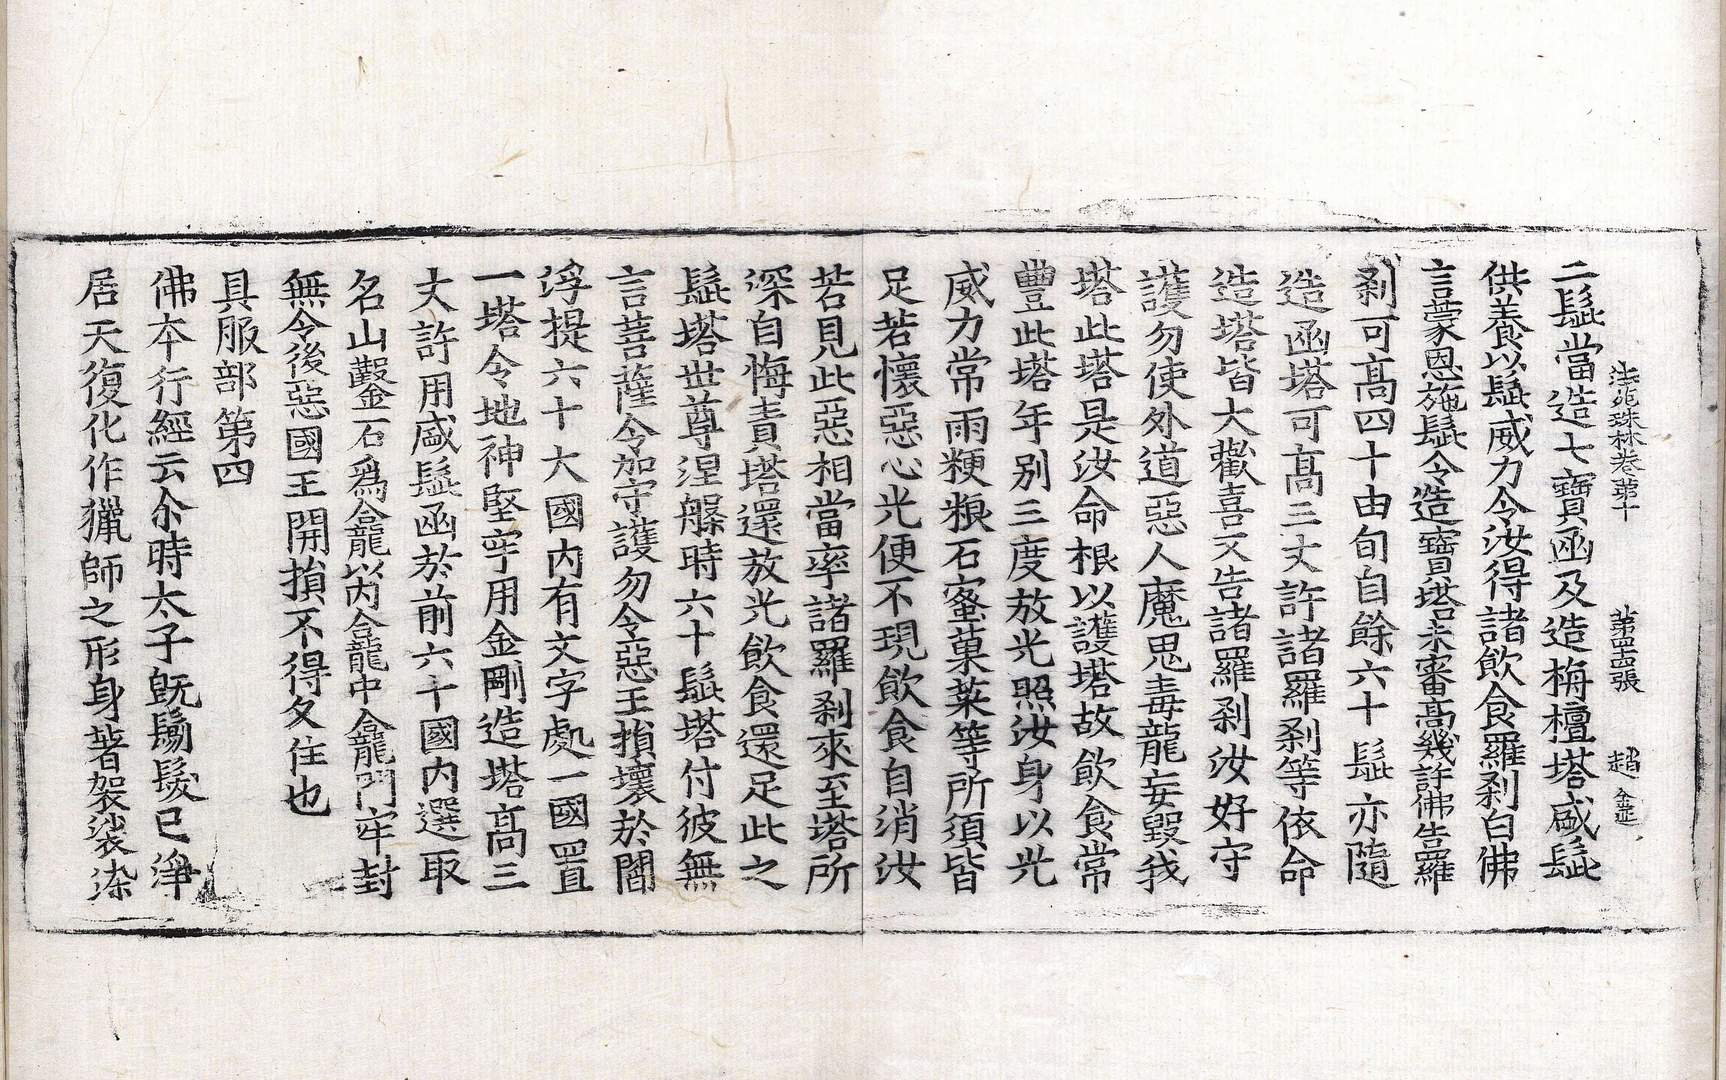 法苑珠林卷第十 第四張 趙
二髭當造七寶函及造栴檀塔盛髭
供養以髭威力令汝得諸飲食羅刹白佛
言蒙恩施髭令造寶塔未審高幾許佛告羅
刹可高四十由旬自餘六十髭亦隨
造函塔可高三丈許諸羅刹等依命
造塔皆大歡喜又告諸羅刹汝好守
護勿使外道惡人魔鬼毒龍妄毀我
塔此塔是汝命根以護塔故飲食常
豐此塔年別三度放光照汝身以光
威力常雨粳粮石蜜菓菜等所須皆
足若懷惡心光便不現飲食自消汝
若見此惡相當率諸羅刹來至塔所
深自悔責塔還放光飲食還足此之
髭塔世尊涅槃時六十髭塔付彼無
言菩薩令加守護勿令惡王損壞於閻
浮提六十大國內有文字處一國置
一塔令地神堅牢用金剛造塔高三
丈許用盛髭函於前六十國內選取
名山鑿石爲龕以內龕中龕門牢封
無令後惡國王開損不得久住也
具服部第四
佛本行經云尒時太子旣鬀髮已淨
居天復化作獵師之形身著袈裟染